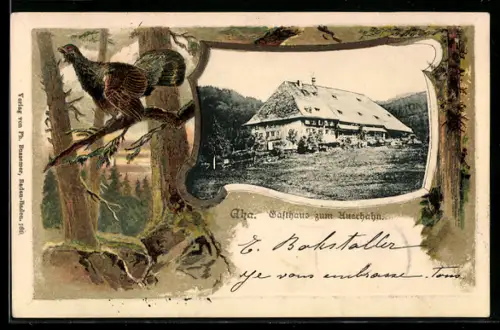 Aha. Gasthaus zum Auerhahn.
E. Bokstaller
je vous embrasse. tous
Verlag von Ph. Bussemer, Baden-Baden. 160.